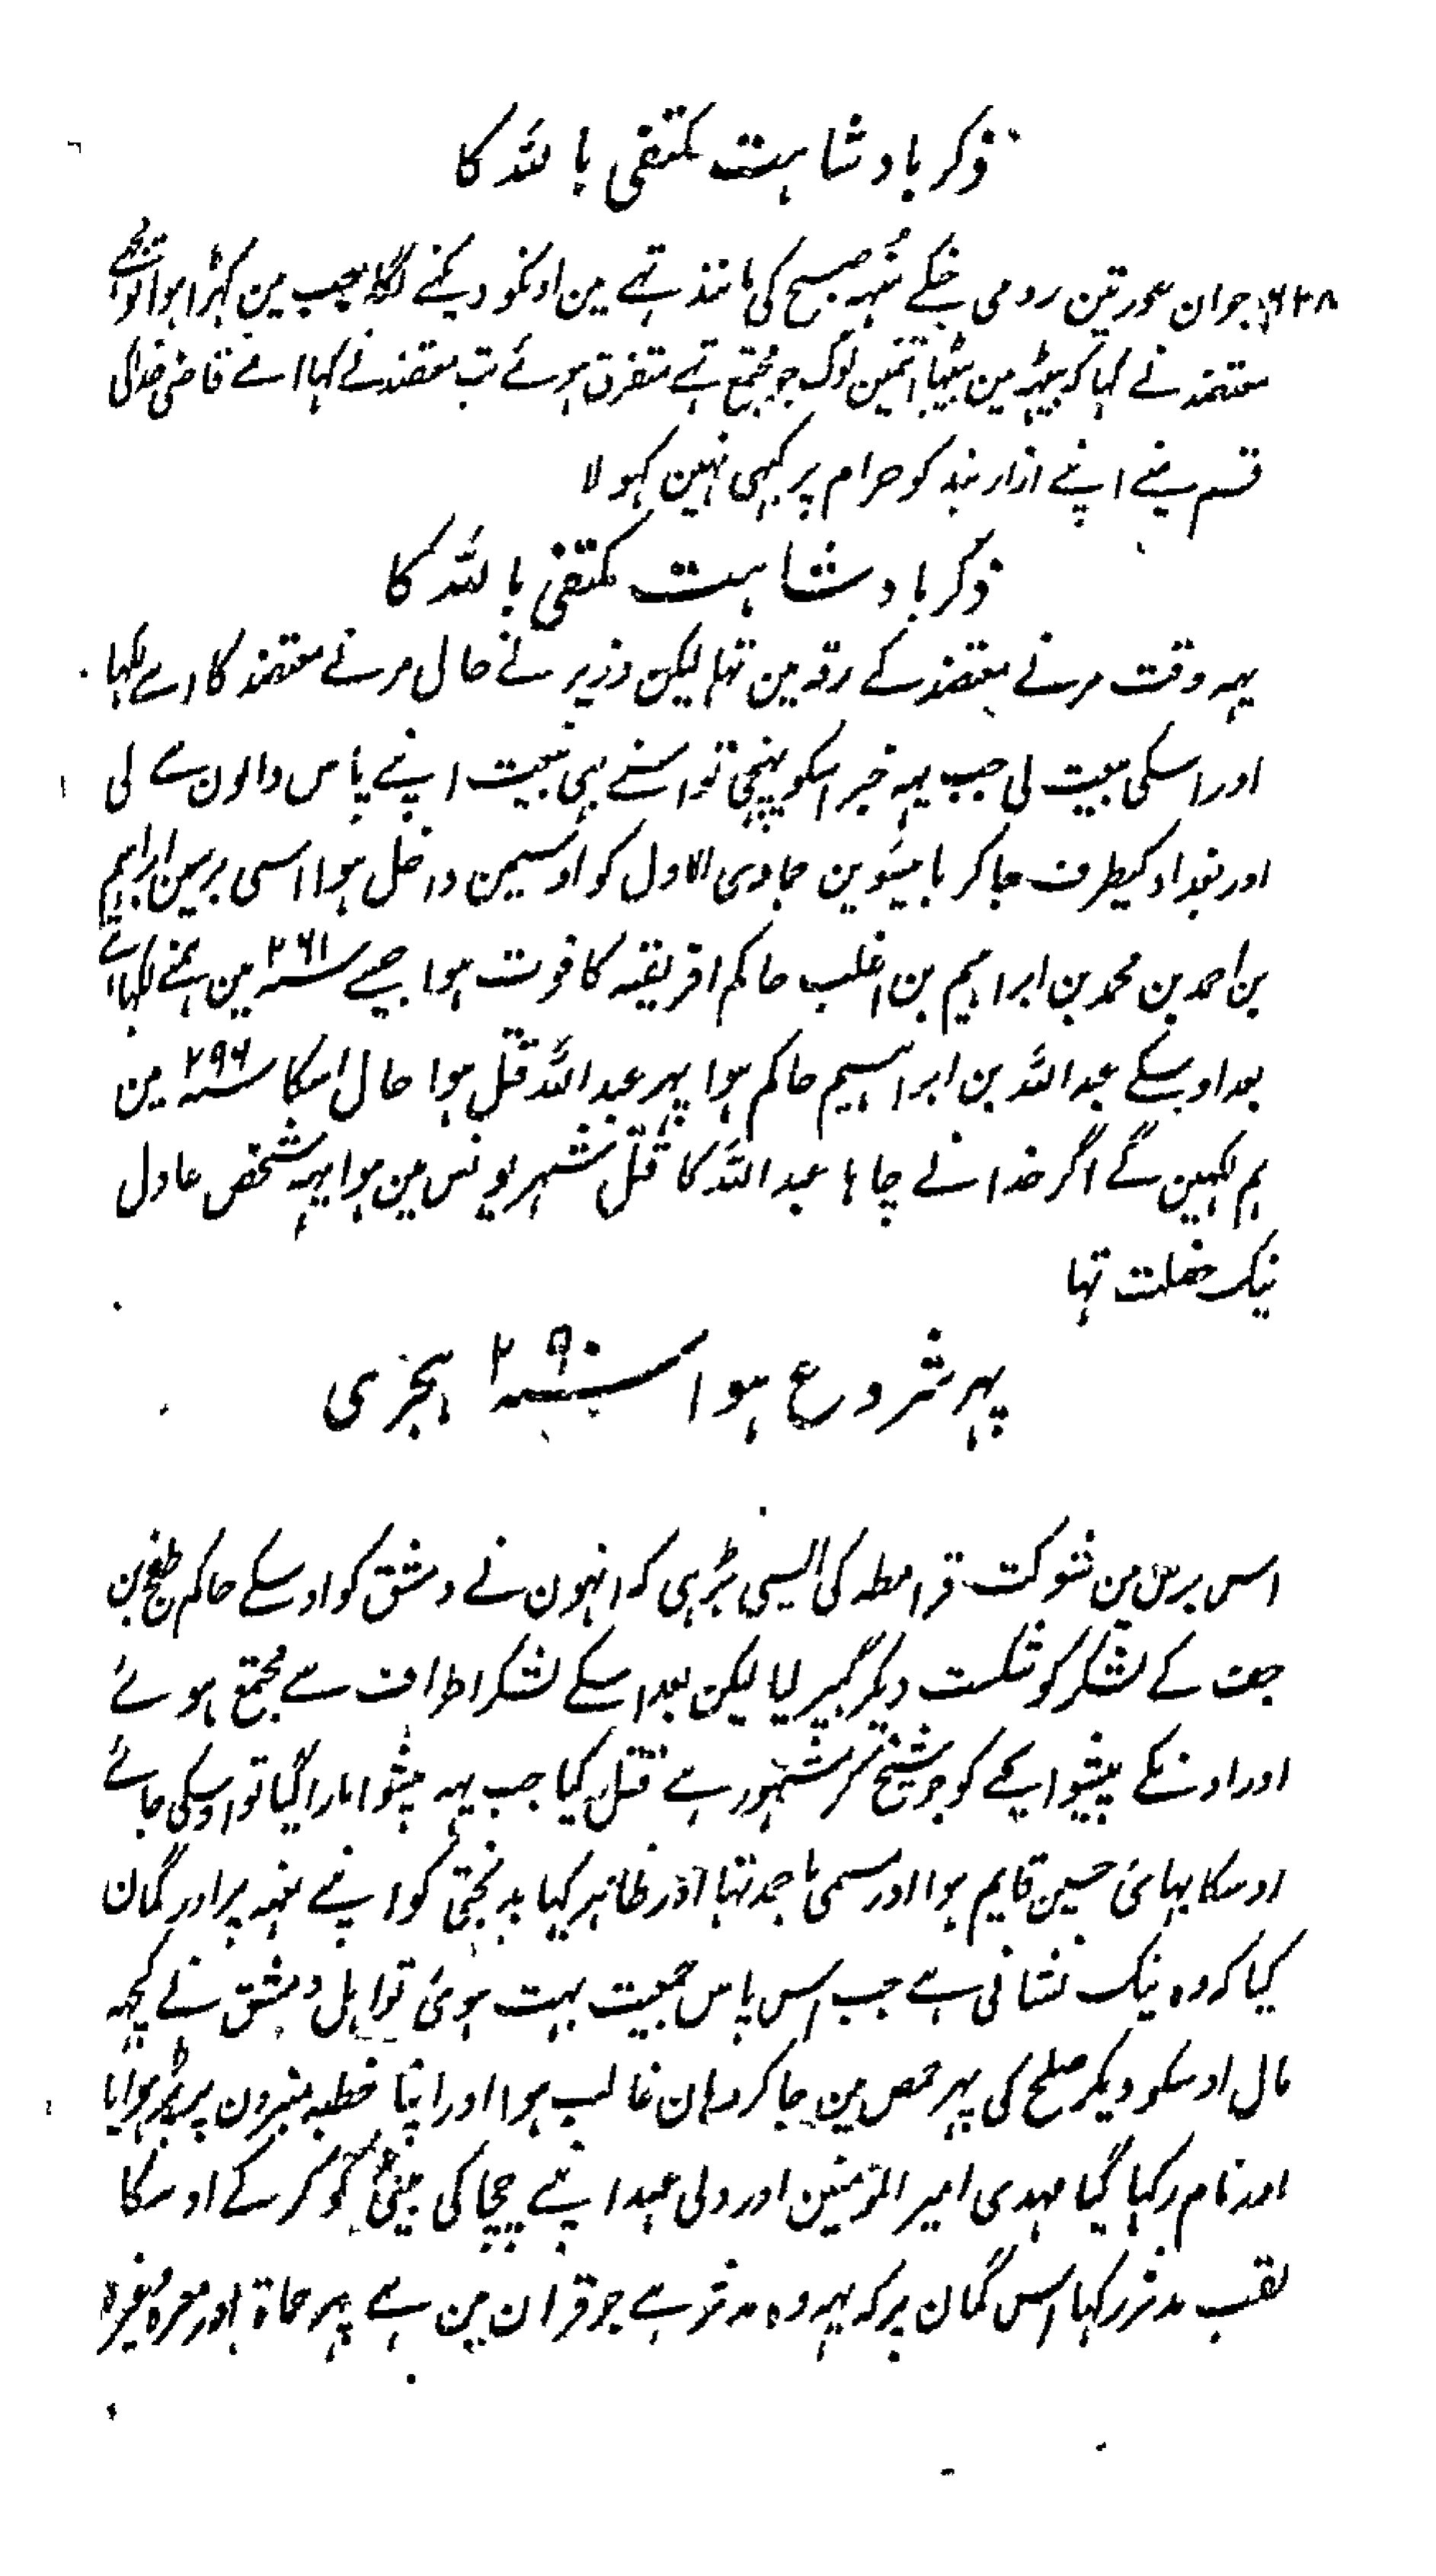 ذکر بادشاہت مکتفی باللہ کا
۶۲۸ جوان عورتین رومی جنکے منہہ صبح کی مانند تہے مین اونکو دیکہنے لگا جب مین کہڑا ہوا تو مجہے
معتضد نے کہا کہ بیٹہہ مین بیٹہا اتنمین لوگ جو مجتمع تہے متفرق ہوئے تب معتضد نے کہا اے قاضی خدا کی
قسم مینے اپنے ازار بند کو حرام پر کبہی نہین کہولا
ذکر بادشاہت مکتفی باللہ کا
یہہ وقت مرنے معتضد کے رقہ مین تہا لیکن وزیر نے حال مرنے معتضد کا اسے لکہا
اور اسکی بیعت لی جب یہہ خبر اسکو پہنچی تو اسنے بہی بیعت اپنے پاس والون سے لی
اور بغداد کیطرف جا کر بائیسوین جمادی الاول کو اوسیمن داخل ہوا اسی برس مین ابراہیم
بن احمد بن محمد بن ابراہیم بن اغلب حاکم افریقیہ کا فوت ہوا جیسے سنہ ۲۶۱ مین ہمنے لکہا ہے
بعد اوسکے عبد اللہ بن ابراہیم حاکم ہوا پہر عبد اللہ قتل ہوا حال اسکا سنہ ۲۹۶ مین
ہم لکہین گے اگر خدا نے چاہا عبد اللہ کا قتل شہر یونس مین ہوا یہہ شخص عادل
نیک خصلت تہا
پہر شروع ہوا سنہ ۲۹۰ ہجری
اس برس مین شوکت قرامطہ کی ایسی بڑہی کہ انہون نے دمشق کو اوسکے حاکم طغج بن
جف کے لشکر کو شکست دیکر گہیر لیا لیکن بعد اسکے لشکر اطراف سے مجتمع ہوئے
اور اونکے پیشوا یحے کو جو شیخ کر مشہور ہے قتل کیا جب یہہ پیشوا مارا گیا تو اوسکی جائے
اوسکا بہائی حسین قایم ہوا اور مسمی باحمد تہا اور ظاہر کیا بد بختی کو اپنے منہہ پر اور گمان
کیا کہ وہ نیک نشانی ہے جب اس پاس جمعیت بہت ہوئی تو اہل دمشق نے کچہہ
مال اوسکو دیکر صلح کی پہر حمص مین جا کر وہان غالب ہوا اور اپنا خطبہ منبرون پر پڑہوایا
اور نام رکہا گیا مہدی امیر المؤمنین اور ولی عہد اپنے چچا کی بیٹی کو کر کے اوسکا
لقب مدثر رکہا اس گمان پر کہ یہہ وہ مدثر ہے جو قران مین ہے پہر حماۃ اور معرہ وغیرہ